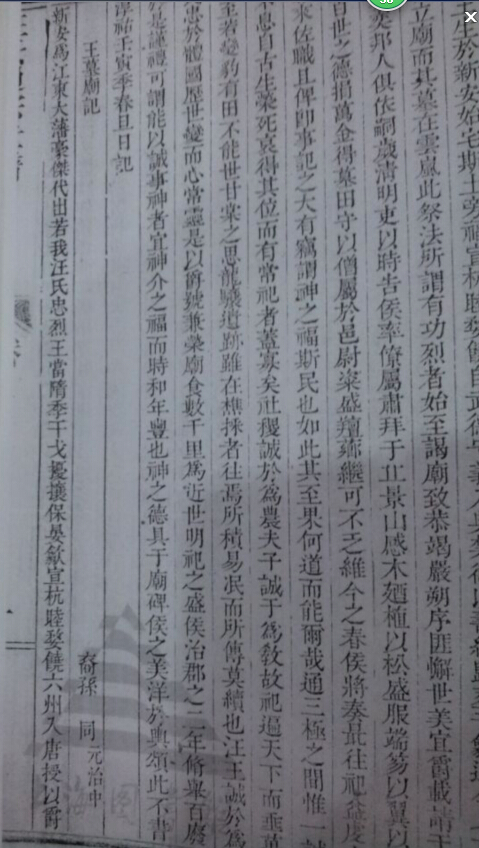 生於新安始宅斯土旁祠宣杭睦婺饒自武德
立廟而其墓在雲嵐此祭法所謂有功烈者始至謁廟致恭竭嚴朔序匪懈世美宜霤載請王
矣邦人俱依嗣歲清明吏以時告侯率僚屬肅拜于丘景山感木廼植以松盛服端笏以翼以
百世之德捐萬金得墓田守以僧屬於邑尉粢盛羶薌繼可不乏維今之春侯將奏最往祀益虔
來佐職且俾即事記之大有竊謂神之福斯民也如此其至果何道而能爾哉通三極之間惟一誠
不息自古生榮死哀得其位而有常祀者蓋寡矣社稷誠於為農夫子誠于為教故祀遍天下而垂萬
至若變豹有田不能世甘棠之思龍驤遺跡雖在樵採者往焉所積易泯而所傳莫續也汪王誠於為
忠於體國歷世變而心常靈是以爵號兼榮廟食數千里為近世明祀之盛侯治郡之二年脩舉百廢
於是謹禮可謂能以誠事神者宜神介之福而時和年豐也神之德具于廟碑侯之美洋於輿頌此不書
淳祐壬寅季春旦日記
王墓廟記
裔孫 同 元治中
新安為江東大藩豪傑代出若我汪氏忠烈王當隋季干戈擾攘保吳歙宣杭睦婺饒六州入唐授以爵